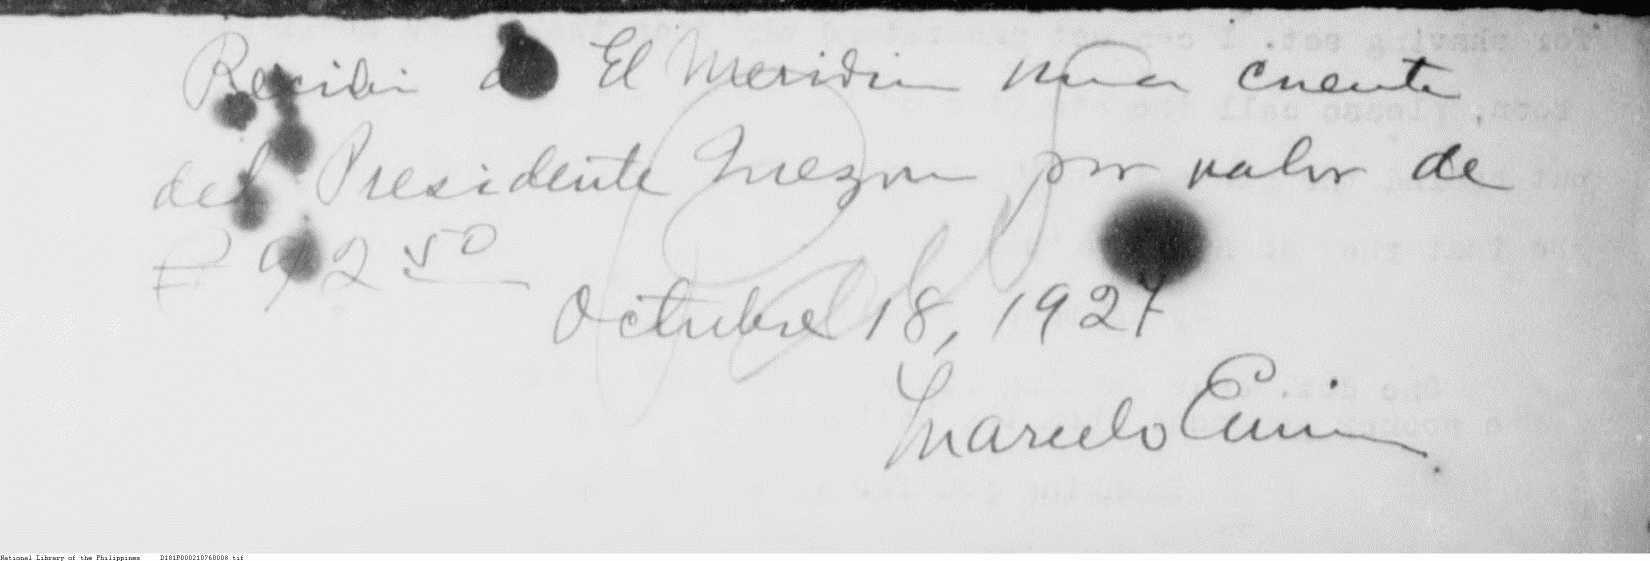 Recibi de El Meridian una cuenta
del Presidente Quezon por valor de
₱ 92 50
Octubre 18, 1927
Marcelo
National Library of the Philippines D101P000210760008.tif